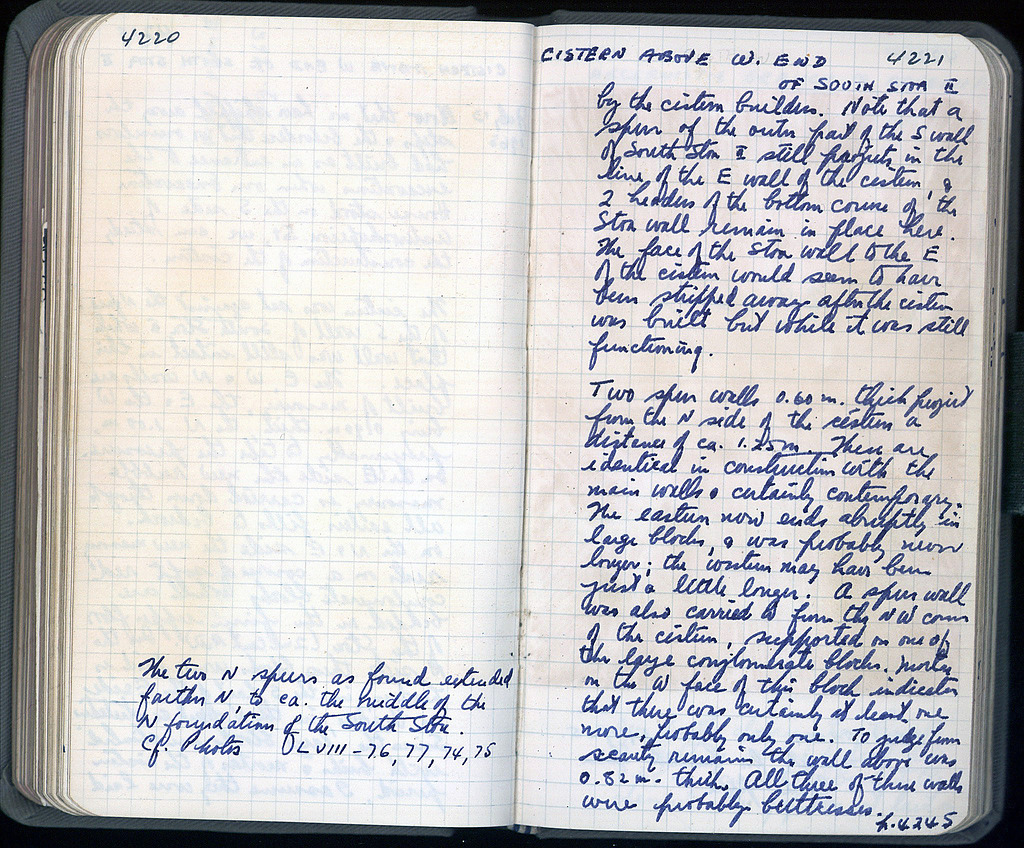 4220
The two N spurs as found extended
farther N, to ca. the middle of the
N foundation of the South Stoa.
Cf. Photos LVIII-76, 77, 74, 75
CISTERN ABOVE W. END 4221
OF SOUTH STOA II
by the cistern builders. Note that a
spur of the outer part of the S wall
of South Stoa II still projects in the
line of the E wall of the cistern, &
2 headers of the bottom course of the
Stoa wall remain in place here.
The face of the Stoa wall to the E
of the cistern would seem to have
been stripped away after the cistern
was built but while it was still
functioning.
Two spur walls 0.60 m. thick project
from the N side of the cistern a
distance of ca. 1.25 m. These are
identical in construction with the
main walls & certainly contemporary.
The eastern now ends abruptly in
large blocks, & was probably never
longer; the western may have been
just a little longer. A spur wall
was also carried W from the NW corner
of the cistern, supported on one of
the large conglomerate blocks. Mortar
on the W face of this block indicates
that there was certainly at least one
more, probably only one. To judge from
scanty remains the wall above was
0.82 m. thick. All three of these walls
were probably buttresses.
p. 4245